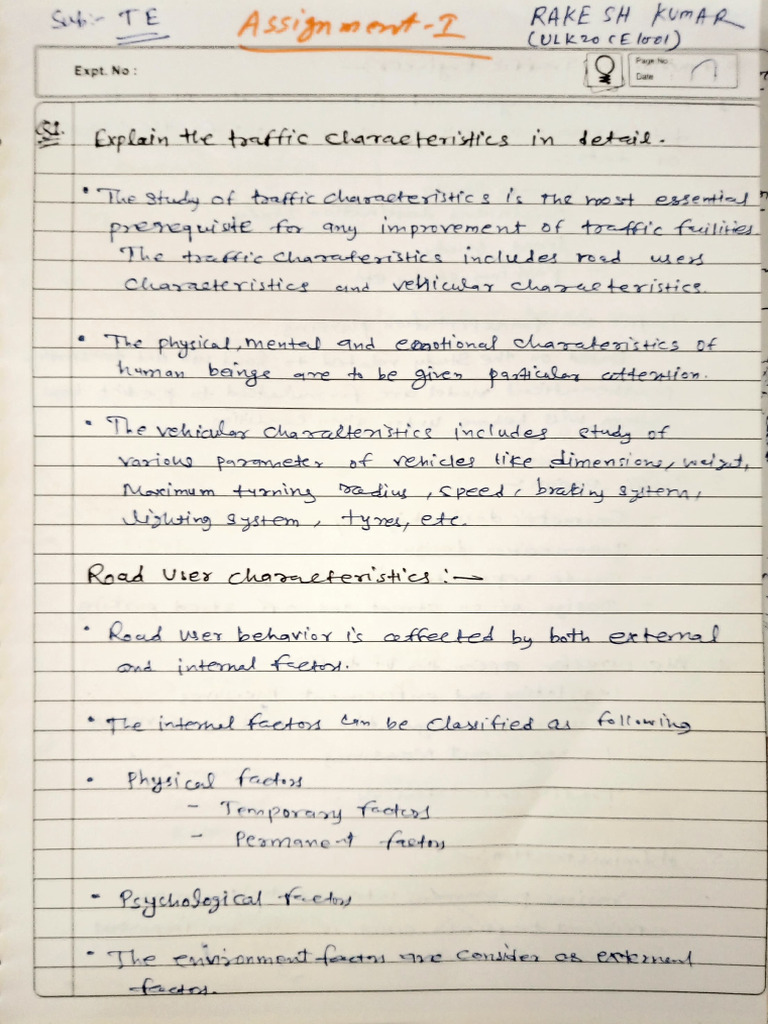 Sub:- TE
Assignment-I
RAKESH KUMAR
(ULK20CE1001)
Expt. No :
Page No
Date
Q1.
Explain the traffic characteristics in detail.
• The study of traffic characteristics is the most essential
prerequiste for any improvement of traffic facilities
The traffic charateristics includes road users
characteristics and vehicular characteristics.
• The physical, mental and emotional charateristics of
human beings are to be given particular attention.
• The vehicular characteristics includes study of
various parameter of vehicles like dimensions, weight,
Maximum turning radius, speed, braking system,
lighting system, tyres, etc.
Road User characteristics :→
• Road user behavior is affected by both external
and internal factors.
• The internal factors can be classified as following
• Physical factors
- Temporary factors
- Permanent factors
- Psychological factors
• The environment factors are consider as external
factors.